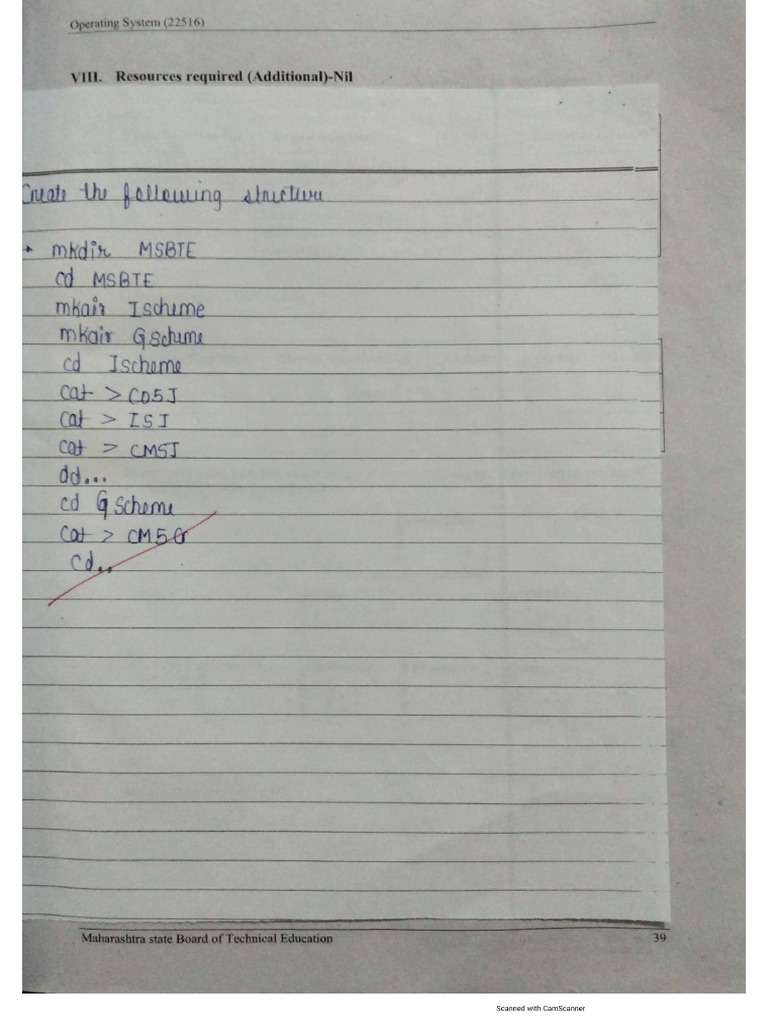 Operating System (22516)
VIII. Resources required (Additional)-Nil
Create the following structure
mkdir MSBTE
cd MSBTE
mkdir Ischeme
mkdir Gscheme
cd Ischeme
cat > CO5I
cat > IS I
cat > CM5I
dd...
cd G scheme
cat > CM5G
cd..
Maharashtra state Board of Technical Education 39
Scanned with CamScanner